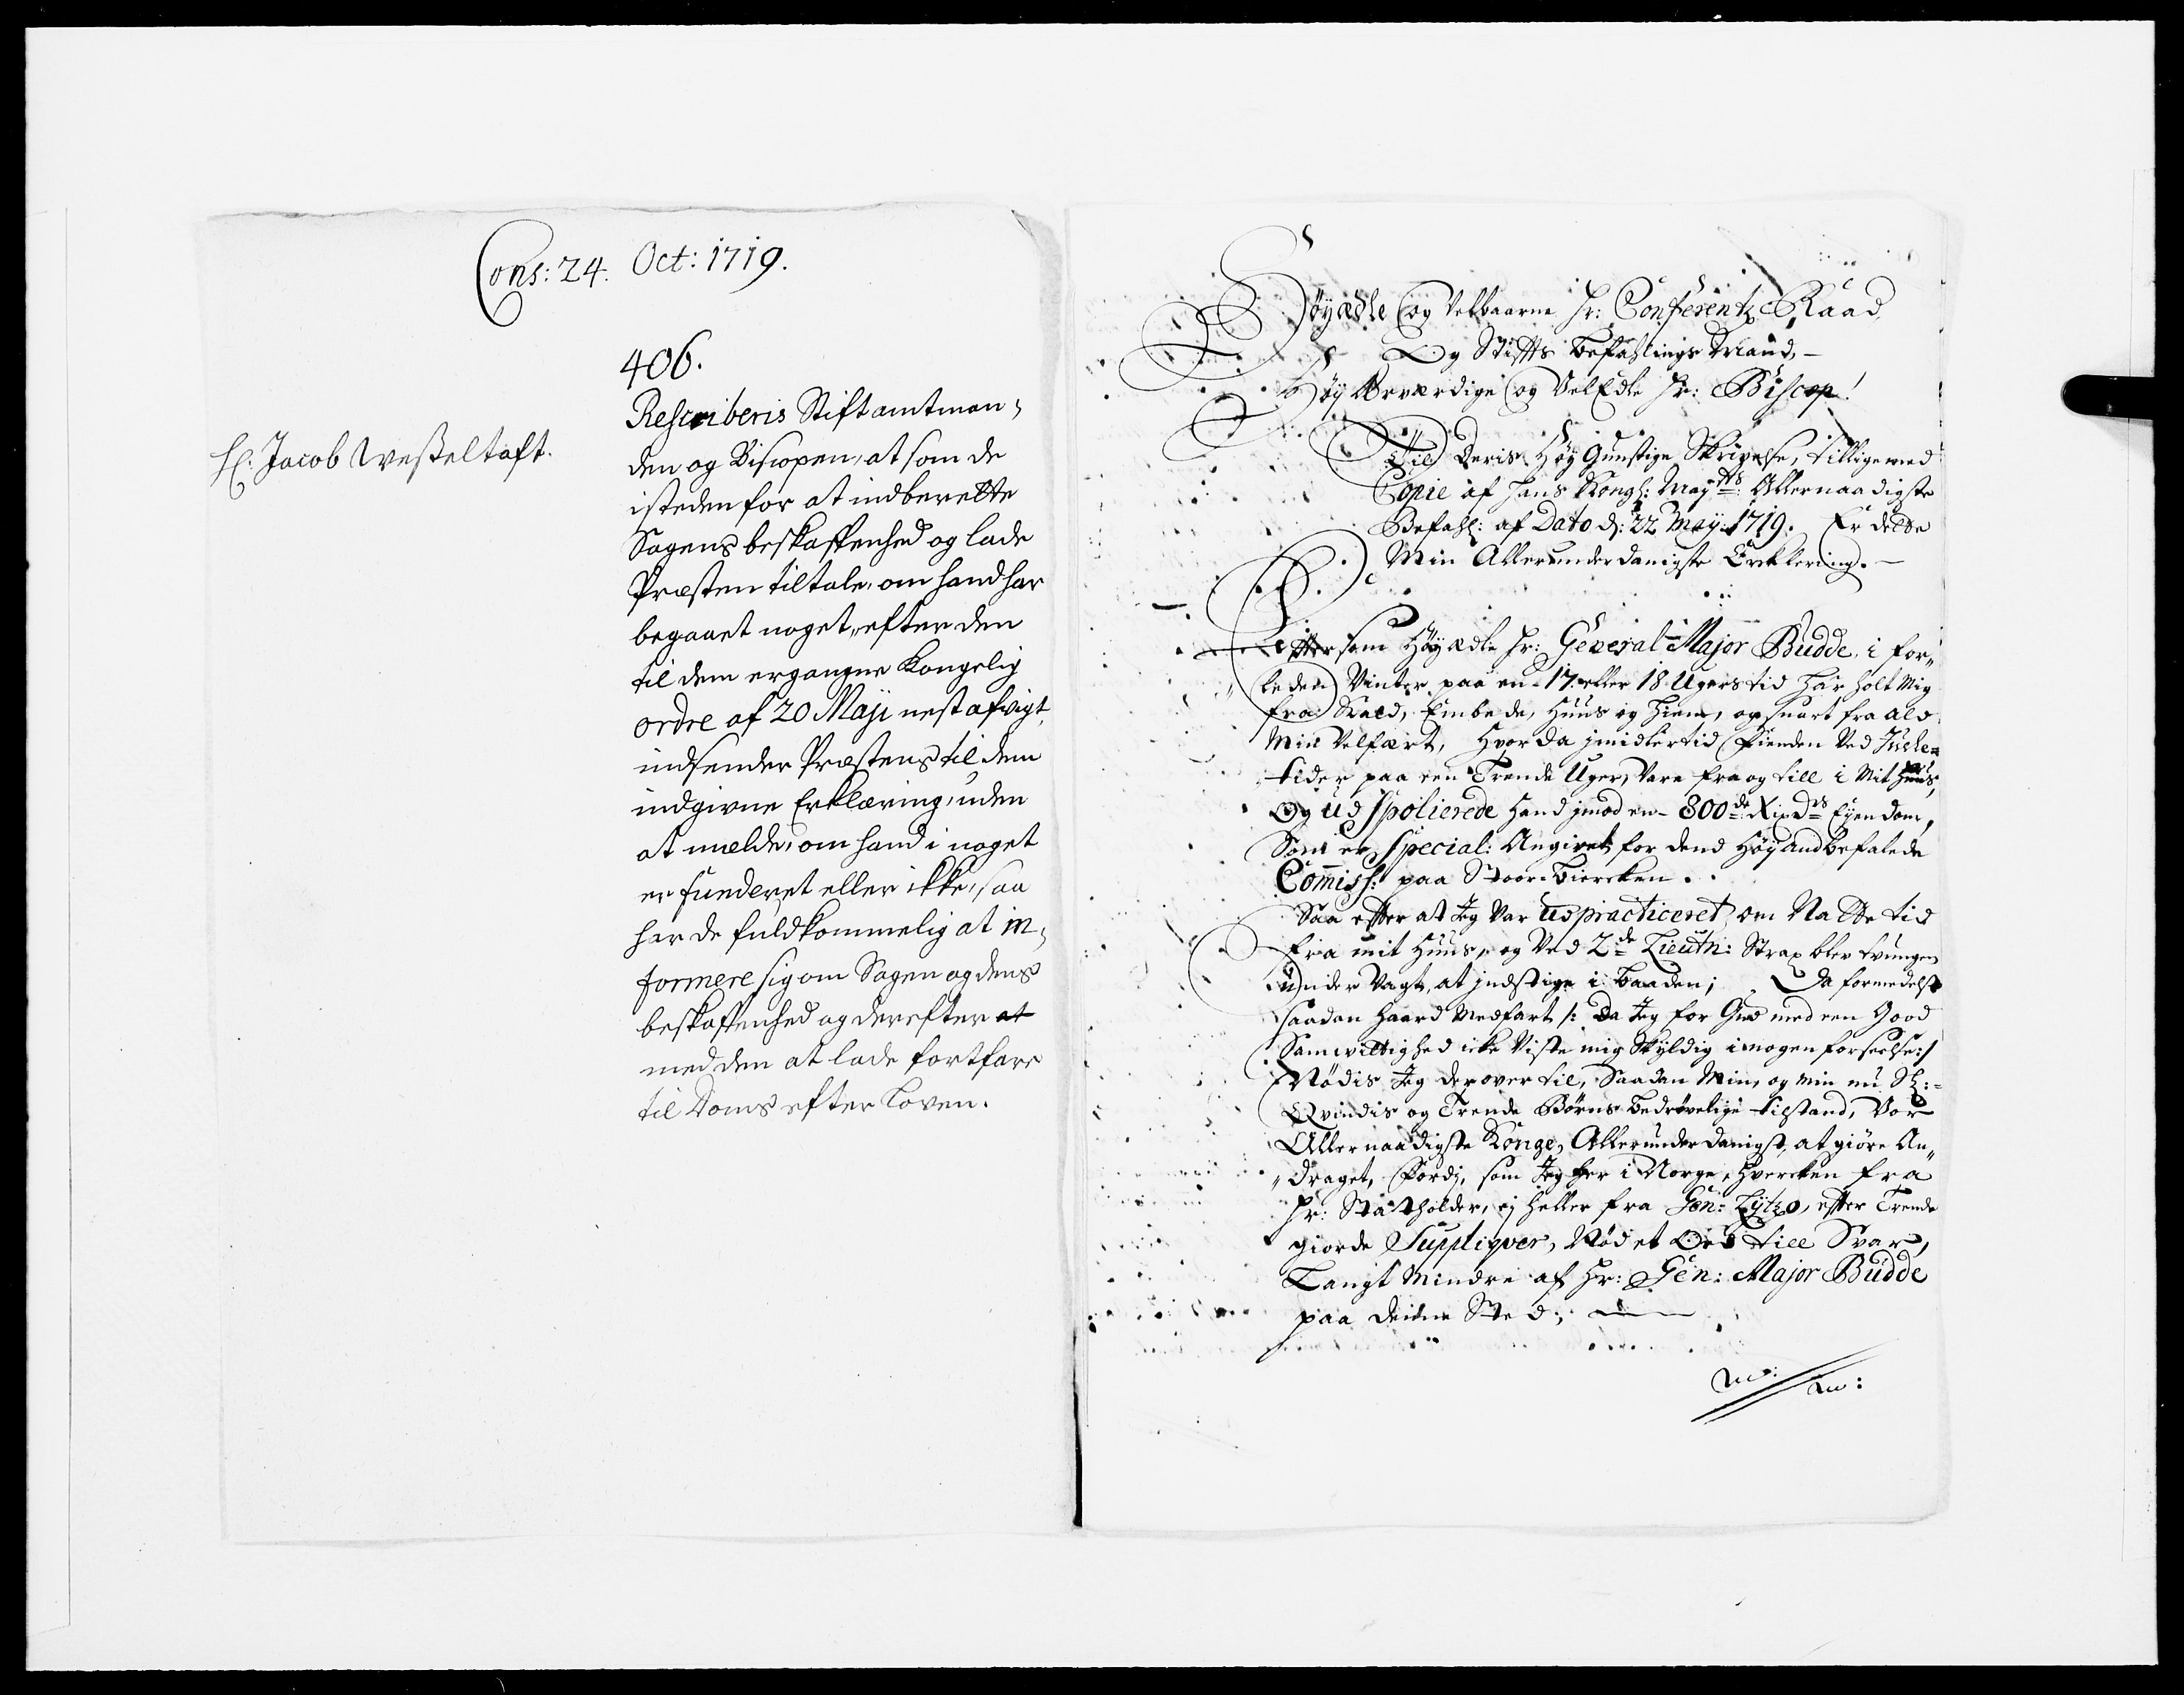 Cons: 24. Oct: 1719.
406.
Hr: Jacob Wesseltoft.
Rescriberis Stiftamtman¬
den og Biscopen, at som de
isteden for at indberette
Sagens beskaffenhed og lade
Præsten tiltale, om hand har
begaaet noget, efter den
til dem ergangne Kongelig
ordre af 20 Maji nest afvigt,
indsender Præstens til dem
indgivne Erklæring, uden
at melde, om hand i noget
er funderet eller ikke, saa
har de fuldkommelig at in¬
formere sig om Sagen og dens
beskaffenhed og derefter at
med den at lade fortfare
til Doms efter Loven.
Høyædle og Velbaarne Hr: Conferentz Raad
Og Stiffts Befahlings Mand, -
Høy Ærværdige og VelEdle Hr: Biscop!
Til Deris Høy Gunstige Skrivelse, tillige med
Copie af Hans Kongl: Maytts: Allernaadigste
Befahl: af Dato d: 22 May: 1719. Er dette
Min Allerunderdanigste Erklering. -
Efftersom Høyædle Hr: General Major Budde, i for¬
leden Vinter paa en 17. eller 18 Ugers tid har holt Mig
fra Kald, Embede, Huus og Hiem, og snart fra ald
Min Velfært, Hvor da jmidlertid Fienden Ved Juele¬
tider paa een Trende Uger, Vare fra og till i Mit Huus,
Og udspolierede Hand jmod en 800de Rixdrs Eyendom,
Som er special: Angivet for dend Høy anbefalede
Commiss: paa Stoor-Biercken.
Saa efter at Jeg Var udpracticeret om Natte tid
fra mit Huus, og Ved 2de Lieutn: Strax blev tvungen
under Vagt, at jndstige i Baaden; Da formedelst
saadan haard Medfart /: Da Jeg for Gud med een Good
Samvittighed icke Viste mig Skyldig i nogen forseelse:/
Nødis Jeg derover til, Saadan Min, og min nu Sl:
Qvindis og Trende Børns bedrøvelige tilstand, Vor
Allernaadigste Konge, Allerunderdanigst, at giøre An¬
draget, Fordj, som Jeg her i Norge, hvercken fra
Hr: Statholder, ej heller fra Gen: Lytzo, efter Trende
giorde Suppliqver, Nød et Ord till Svar,
Langt Mindre af Hr: Gen: Major Budde
paa deinne Sted;